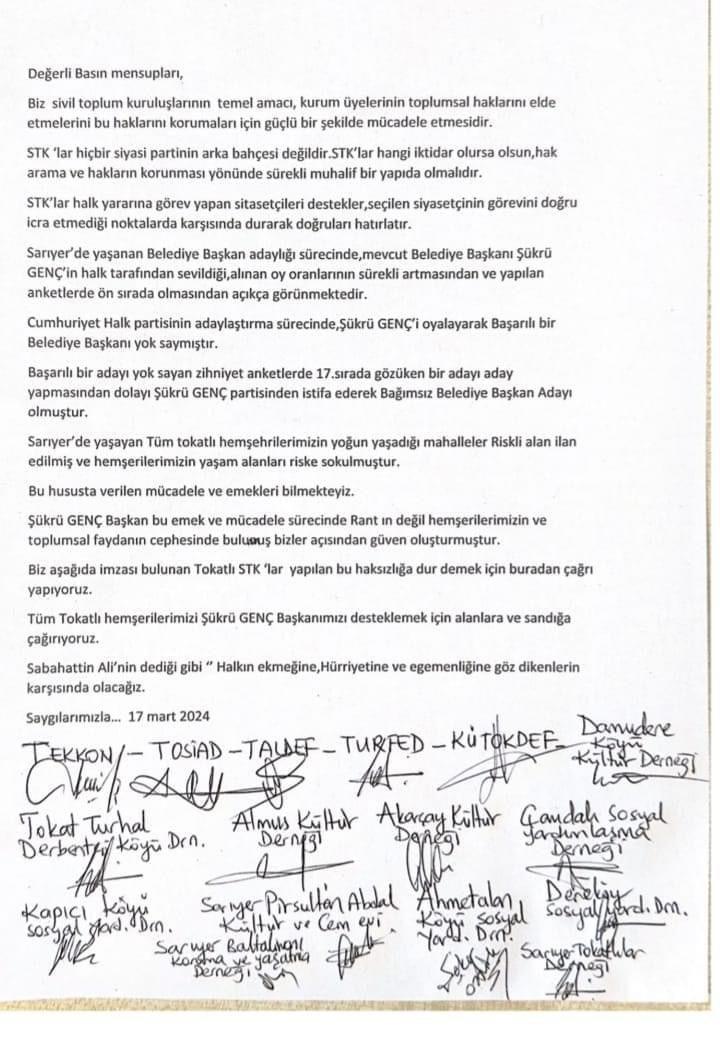 Değerli Basın mensupları,
Biz sivil toplum kuruluşlarının temel amacı, kurum üyelerinin toplumsal haklarını elde
etmelerini bu haklarını korumaları için güçlü bir şekilde mücadele etmesidir.
STK 'lar hiçbir siyasi partinin arka bahçesi değildir.STK'lar hangi iktidar olursa olsun,hak
arama ve hakların korunması yönünde sürekli muhalif bir yapıda olmalıdır.
STK'lar halk yararına görev yapan sitasetçileri destekler,seçilen siyasetçinin görevini doğru
icra etmediği noktalarda karşısında durarak doğruları hatırlatır.
Sarıyer'de yaşanan Belediye Başkan adaylığı sürecinde,mevcut Belediye Başkanı Şükrü
GENÇ'in halk tarafından sevildiği,alınan oy oranlarının sürekli artmasından ve yapılan
anketlerde ön sırada olmasından açıkça görünmektedir.
Cumhuriyet Halk partisinin adaylaştırma sürecinde,Şükrü GENÇ'i oyalayarak Başarılı bir
Belediye Başkanı yok saymıştır.
Başarılı bir adayı yok sayan zihniyet anketlerde 17.sırada gözüken bir adayı aday
yapmasından dolayı Şükrü GENÇ partisinden istifa ederek Bağımsız Belediye Başkan Adayı
olmuştur.
Sarıyer'de yaşayan Tüm tokatlı hemşehrilerimizin yoğun yaşadığı mahalleler Riskli alan ilan
edilmiş ve hemşerilerimizin yaşam alanları riske sokulmuştur.
Bu hususta verilen mücadele ve emekleri bilmekteyiz.
Şükrü GENÇ Başkan bu emek ve mücadele sürecinde Rant ın değil hemşerilerimizin ve
toplumsal faydanın cephesinde bulumuş bizler açısından güven oluşturmuştur.
Biz aşağıda imzası bulunan Tokatlı STK 'lar yapılan bu haksızlığa dur demek için buradan çağrı
yapıyoruz.
Tüm Tokatlı hemşerilerimizi Şükrü GENÇ Başkanımızı desteklemek için alanlara ve sandığa
çağırıyoruz.
Sabahattin Ali'nin dediği gibi " Halkın ekmeğine,Hürriyetine ve egemenliğine göz dikenlerin
karşısında olacağız.
Saygılarımızla... 17 mart 2024
TEKKON - TOSİAD - TALDEF - TURFED - KÜTOKDEF
Damudere
Köyü
Kültür Derneği
Tokat Turhal
Derbentçi Köyü Drn.
Almus Kültür
Derneği
Akarçay Kültür
Derneği
Çandah Sosyal
yardımlaşma
Derneği
Kapıcı Köyü
sosyal yard. Drn.
Sarıyer Pirsultan Abdal
Kültür ve Cem evi
Ahmetalan
Köyü sosyal
Yard. Drn.
Dereköy
sosyal yard. Drn.
Sarıyer Baltalimanı
Koruma ve yaşatma
Derneği
Sarıyer Tokatlılar
Derneği